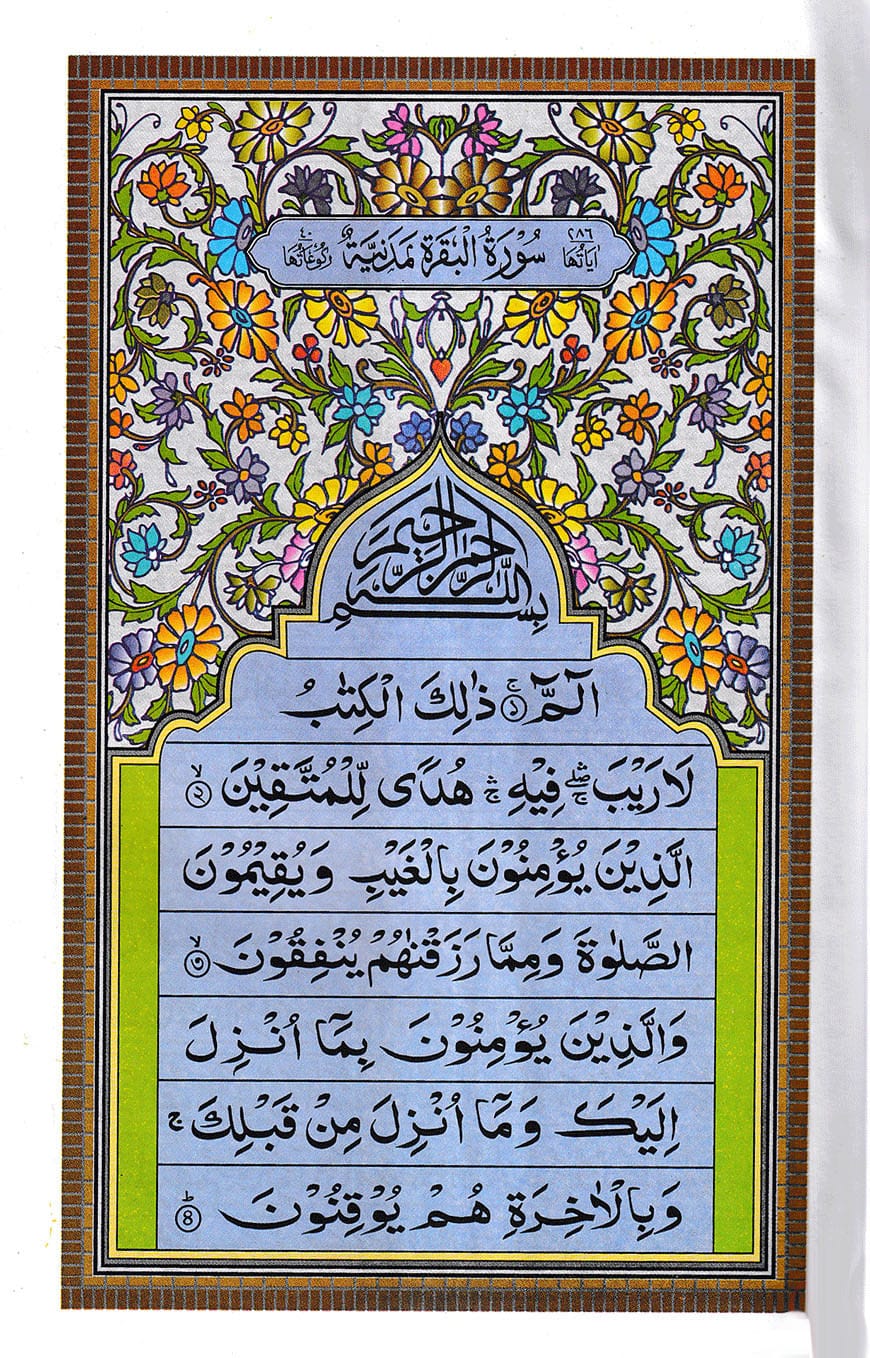 اٰيَاتُهَا ٢٨٦ سُوْرَةُ الْبَقَرَةِ مَدَنِيَّةٌ رُكُوْعَاتُهَا ٤٠
بِسْمِ اللّٰهِ الرَّحْمٰنِ الرَّحِيْمِ
الٓمّٓ ۚ‏﴿۱﴾ ذٰلِكَ الْكِتٰبُ
لَا رَيْبَ ۖۛۚ فِيْهِ ۛۚ هُدًى لِّلْمُتَّقِيْنَ ۙ﴿۲﴾
الَّذِيْنَ يُؤْمِنُوْنَ بِالْغَيْبِ وَيُقِيْمُوْنَ
الصَّلٰوةَ وَمِمَّا رَزَقْنٰهُمْ يُنْفِقُوْنَ ۙ﴿۳﴾
وَالَّذِيْنَ يُؤْمِنُوْنَ بِمَآ اُنْزِلَ
اِلَيْكَ وَمَآ اُنْزِلَ مِنْ قَبْلِكَ ۚ
وَبِالْاٰخِرَةِ هُمْ يُوْقِنُوْنَ ؕ﴿۴﴾